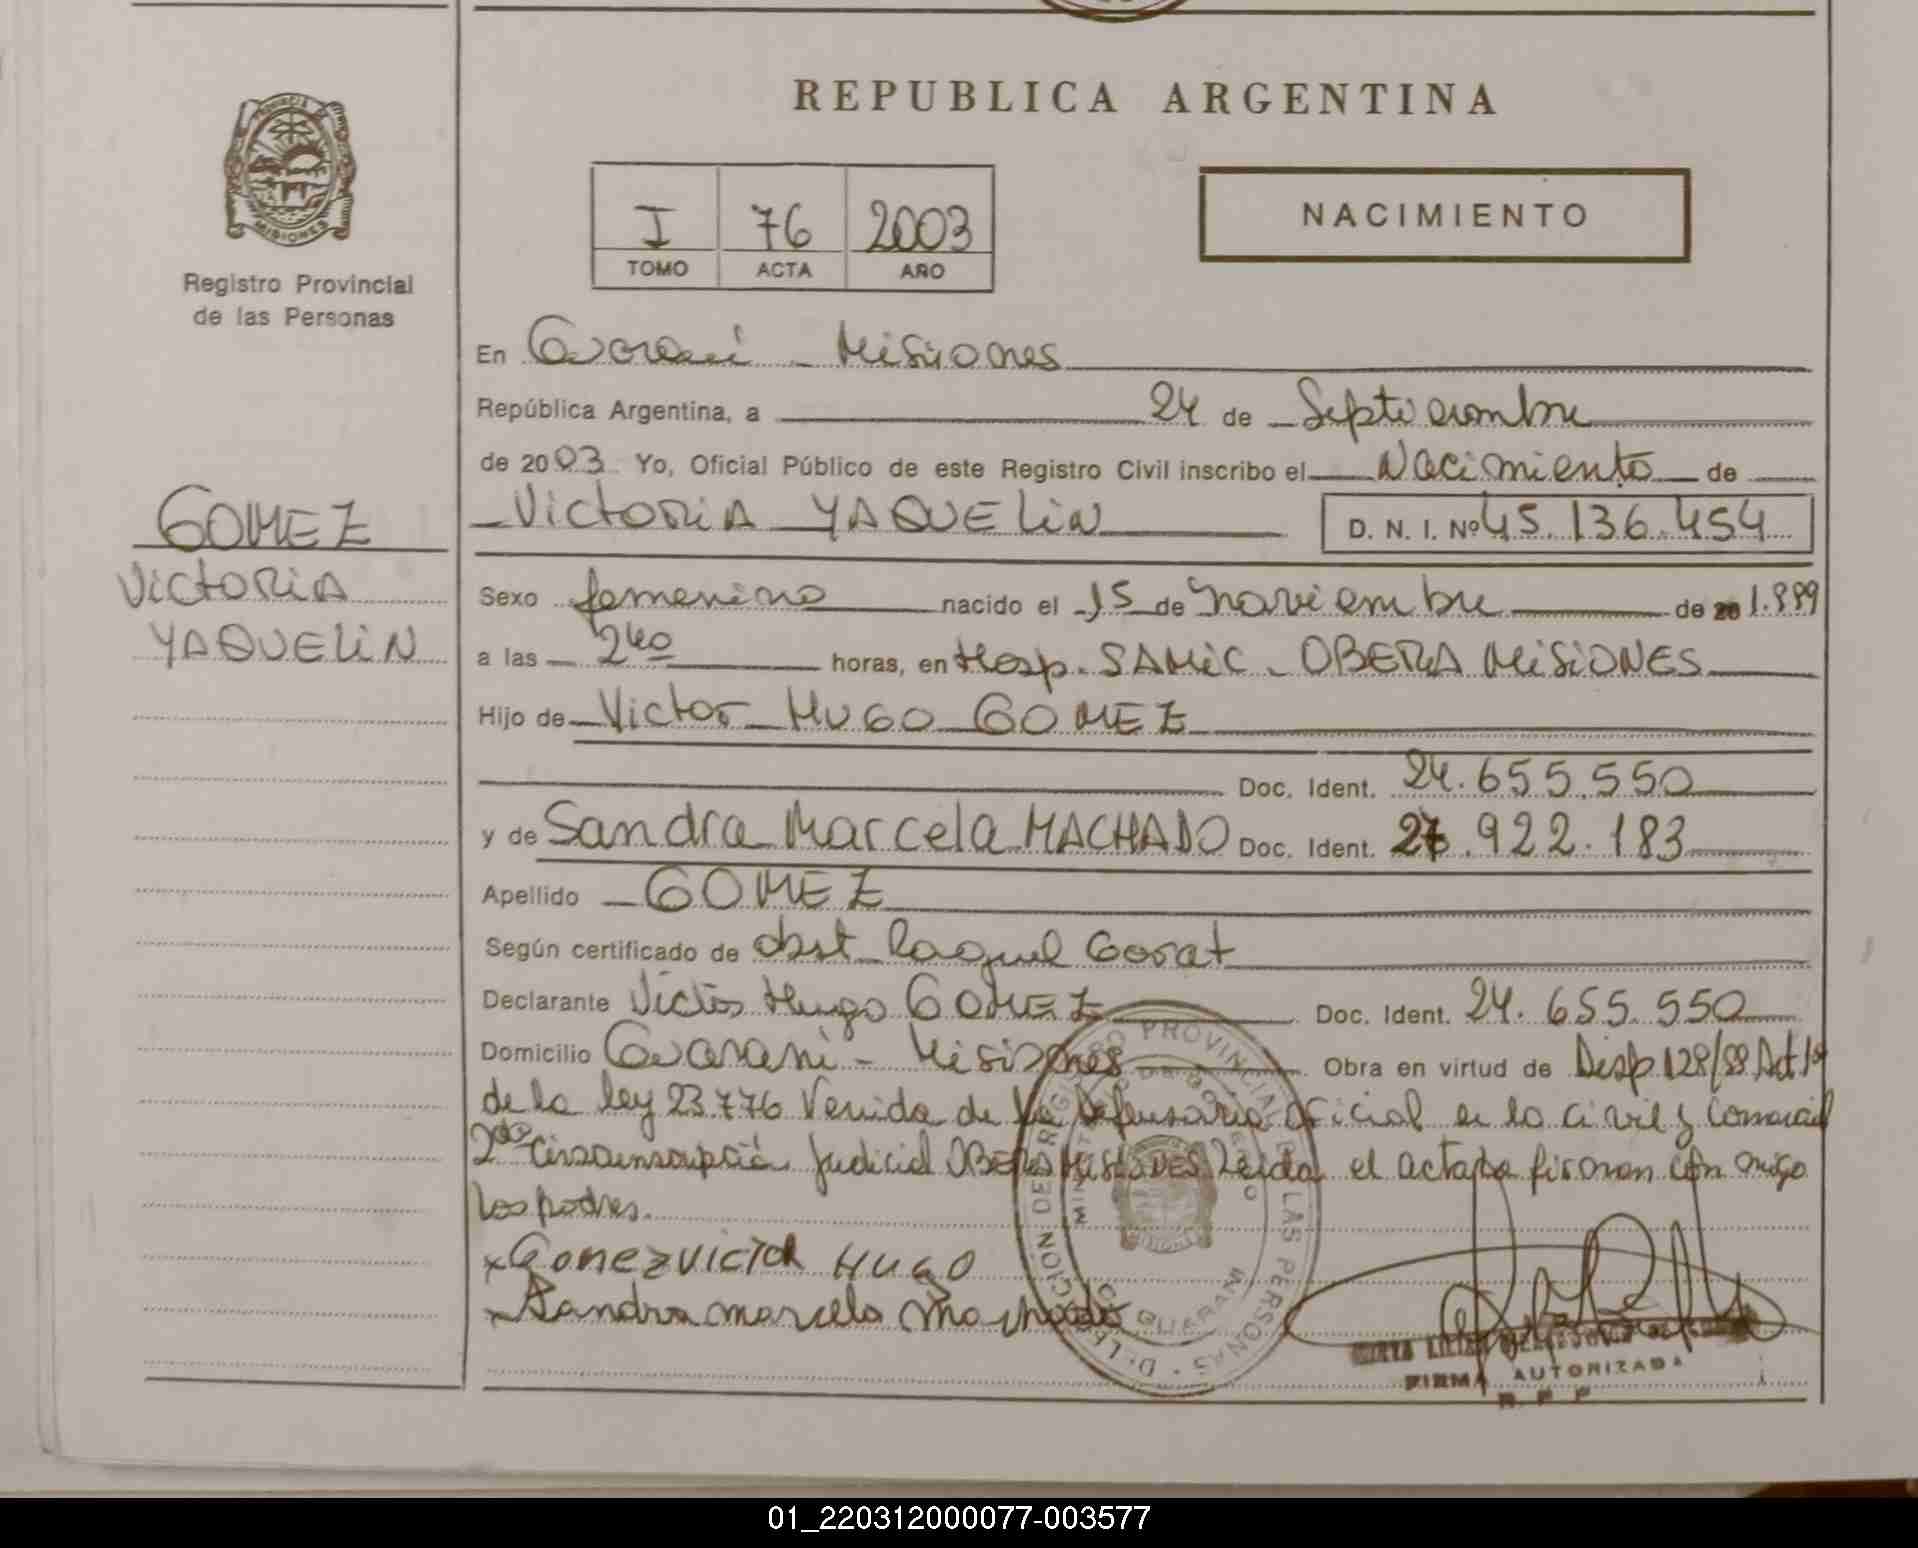 REPUBLICA ARGENTINA
PROVINCIA
MISIONES
Registro Provincial
de las Personas
I 76 2003
TOMO ACTA AÑO
NACIMIENTO
En Guarani - Misiones
República Argentina, a 24 de Septiembre
de 2003 Yo, Oficial Público de este Registro Civil inscribo el Nacimiento de
VICTORIA YAQUELIN D. N. I. Nº 45.136.454
GOMEZ
VICTORIA
YAQUELIN
Sexo femenino nacido el 15 de noviembre de 20 1.999
a las 240 horas, en Hosp. SAMIC - OBERA MISIONES
Hijo de Victor HUGO GOMEZ
Doc. Ident. 24.655.550
y de Sandra Marcela MACHADO Doc. Ident. .922.183
Apellido GOMEZ
Según certificado de Obst Raquel
Declarante Victor Hugo GOMEZ Doc. Ident. 24.655.550
Domicilio Guarani - Misiones Obra en virtud de Disp 128/88 Art 1º
de la ley 23.776 Venida de la Defensoria Oficial en lo Civil y Comercial
2da Circunscripción Judicial OBERA MISIONES Leida el acta la firman con migo
los padres.
x Gomez victor HUGO
x Sandra marcela Machado
DELEGACION DE REGISTRO PROVINCIAL DE LAS PERSONAS
GUARANI
FIRMA AUTORIZADA
R. P. P
01_220312000077-003577